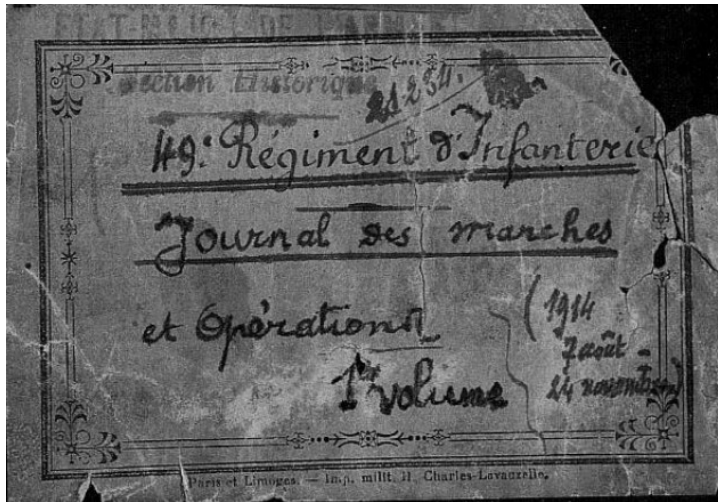 ETAT-MAJOR DE L'ARMÉE
Section Historique
49e Régiment d'Infanterie
Journal des marches
et Opérations
1er volume
(1914
7 août -
24 novembre)
Paris et Limoges. — Imp. milit. H. Charles-Lavauzelle.